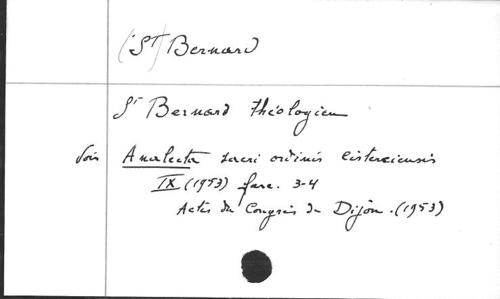 (St) Bernard
St Bernard théologien
Vois Analecta sacri ordinis cisterciensis
IX (1953) fasc. 3-4
Actes du Congrès de Dijon. (1953)